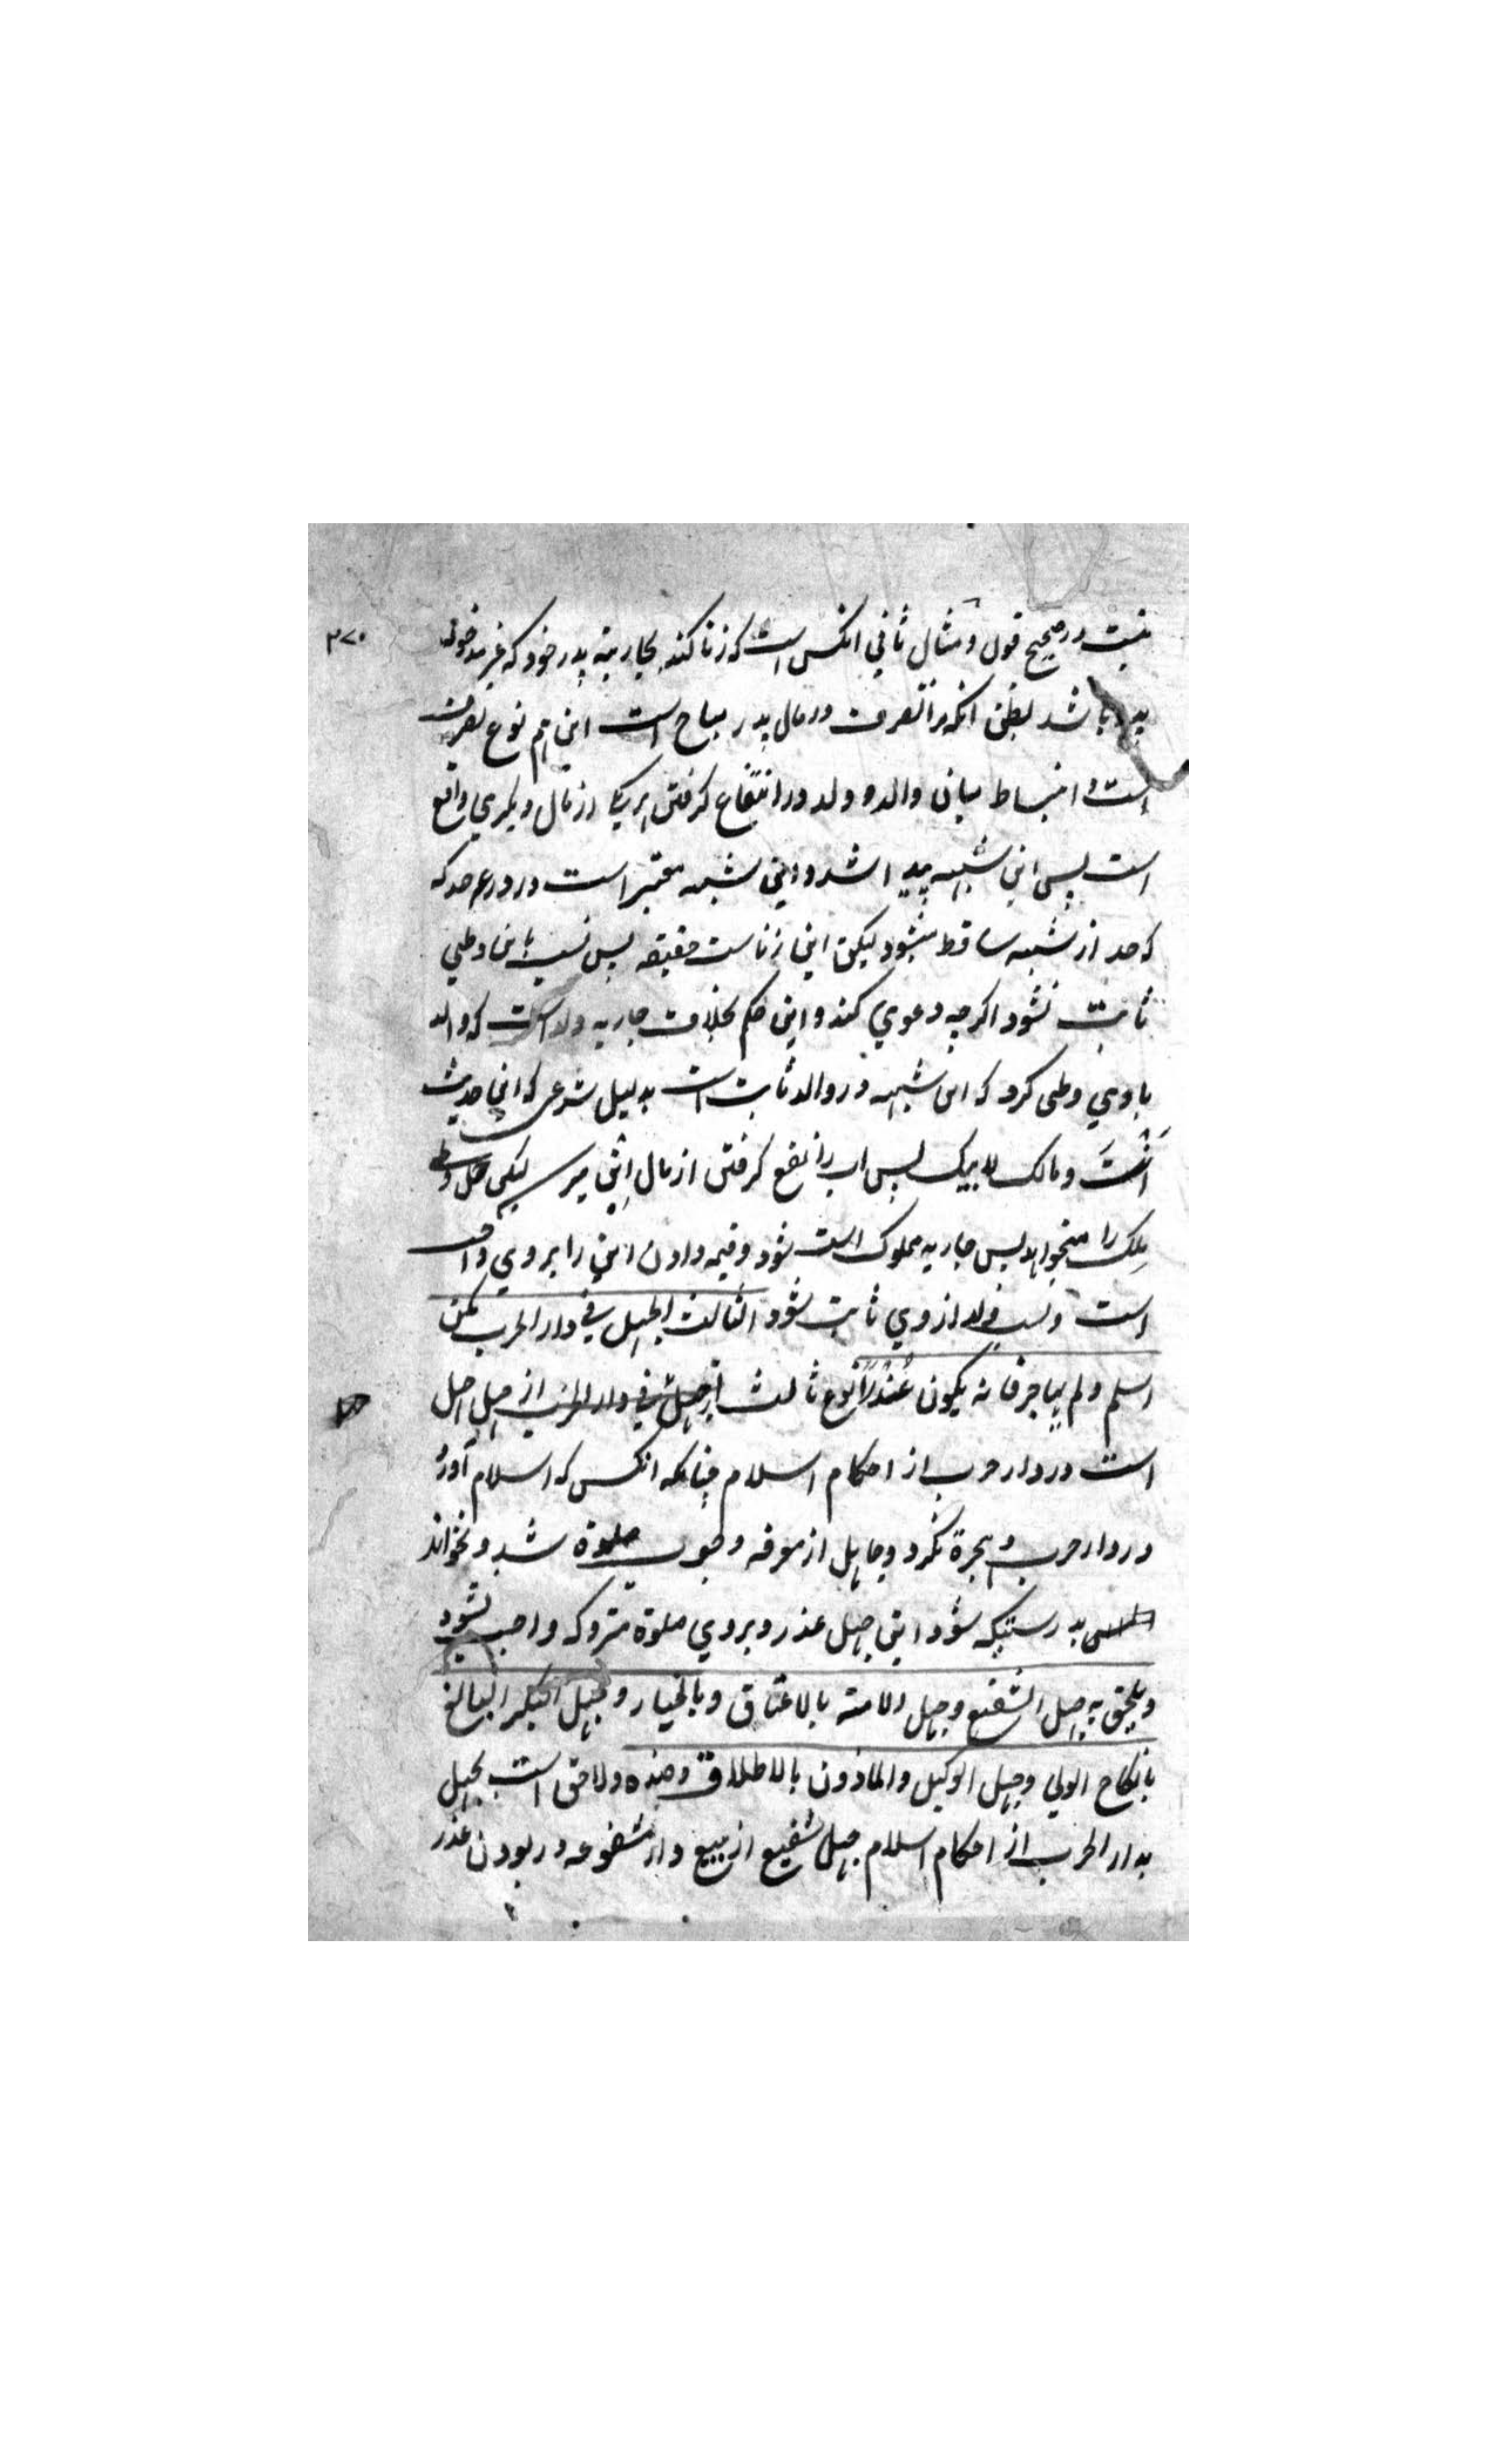 نیست در صحیح قول و مثال ثانی آنکس است که زنا کند بجاریه پدر خود که غیر مدخوله
پدر باشد بظن آنکه مرا تصرف در مال پدر مباح است این هم نوع تصرف
است و انبساط میان والد و ولد در انتفاع گرفتن هر یکی از مال دیگری واقع
است پس این شبهه پیدا شد و این شبهه معتبر است در درء حد که
که حد از شبهه ساقط میشود لیکن این زناست حقیقه پس نسب باین وطی
ثابت نشود اگرچه دعوی کند و این حکم بخلاف جاریه ولد است که والد
با وی وطی کرد که این شبهه در والد ثابت است بدلیل شرعی که این حدیث
اَنْتَ و مالک لابیک پس اب را نفع گرفتن از مال ابن میرسد لیکن حل وطی
ملک را میخواهد پس جاریه مملوک اب شود و قیمه دادن ابن را بر وی واجب
است و نسب ولد از وی ثابت شود الثالث الجهل فی دار الحرب ممن
اسلم و لم یهاجر فانه یکون عُذْرًا نوع ثالث از جهل فی دار الحرب از جهل جهل
است در دار حرب از احکام اسلام چنانکه آنکس که اسلام آورد
در دار حرب و هجرة نکرد و جاهل از معرفه وجوب صلوة شد و نخواند
بدرستیکه شود این جهل عذر و بر وی صلوة متروکه واجب نشود
و یلحق به جهل الشفیع و جهل الامة بالاعتاق و بالخیار و جهل البکر البالغ
بانکاح الولی و جهل الوکیل و الماذون بالاطلاق و ضده و لاحق است بجهل
بدار الحرب از احکام اسلام جهل شفیع از بیع دار مشفوعه در بودن عذر
۳۷۰